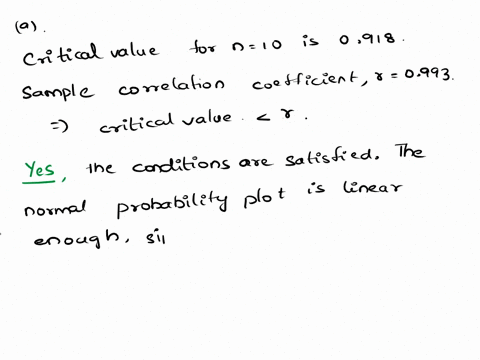 (a).
Critical value for n=10 is 0.918.
Sample correlation coefficient, r = 0.993.
⇒ critical value < r.
Yes, the conditions are satisfied. The
normal probability plot is linear
enough,